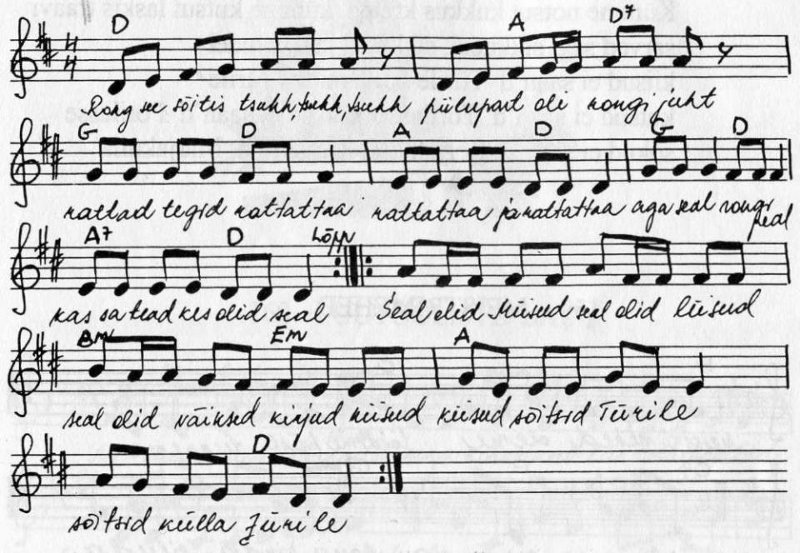 D A D7
Rong see sõitis tsuhh, tsuhh, tsuhh piilupart oli rongijuht
G D A D G D
rattad tegid rattattaa rattattaa ja rattattaa aga seal rongi peal
A7 D Lõpp
kas sa tead kes olid seal Seal olid Miisud seal olid Liisud
Bm Em A
seal olid väiksed kirjud kiisud kiisud sõitsid Türile
D
sõitsid külla Jürile